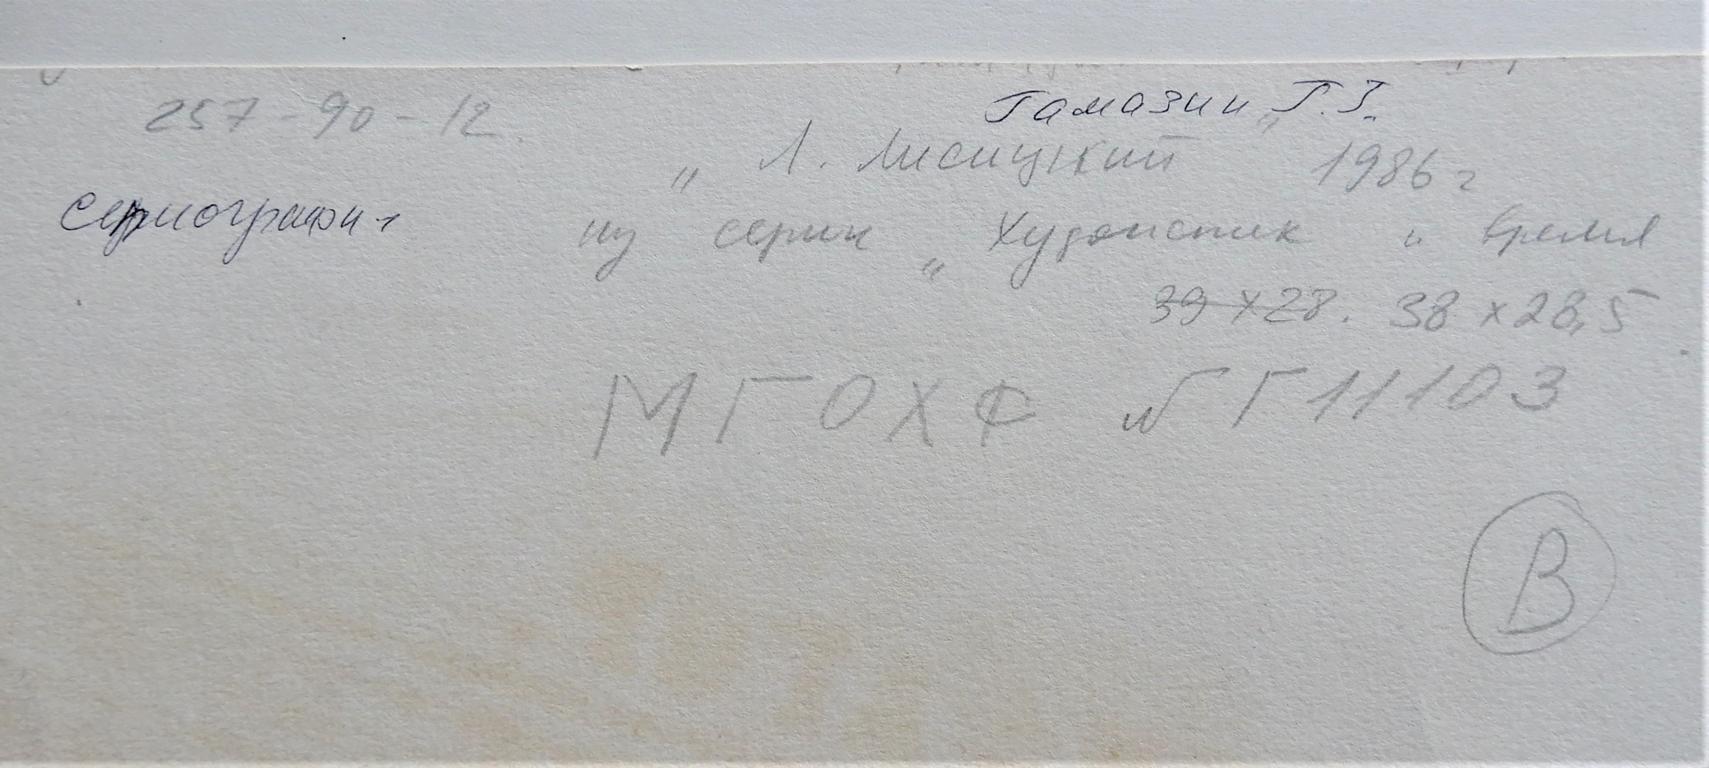 257-90-12
Гамазин Г.З.
„Л. Лисицкий" 1986 г
сериография
из серии „Художник и время
39 х 28. 38 х 28,5
МГОХФ № Г 11103
В